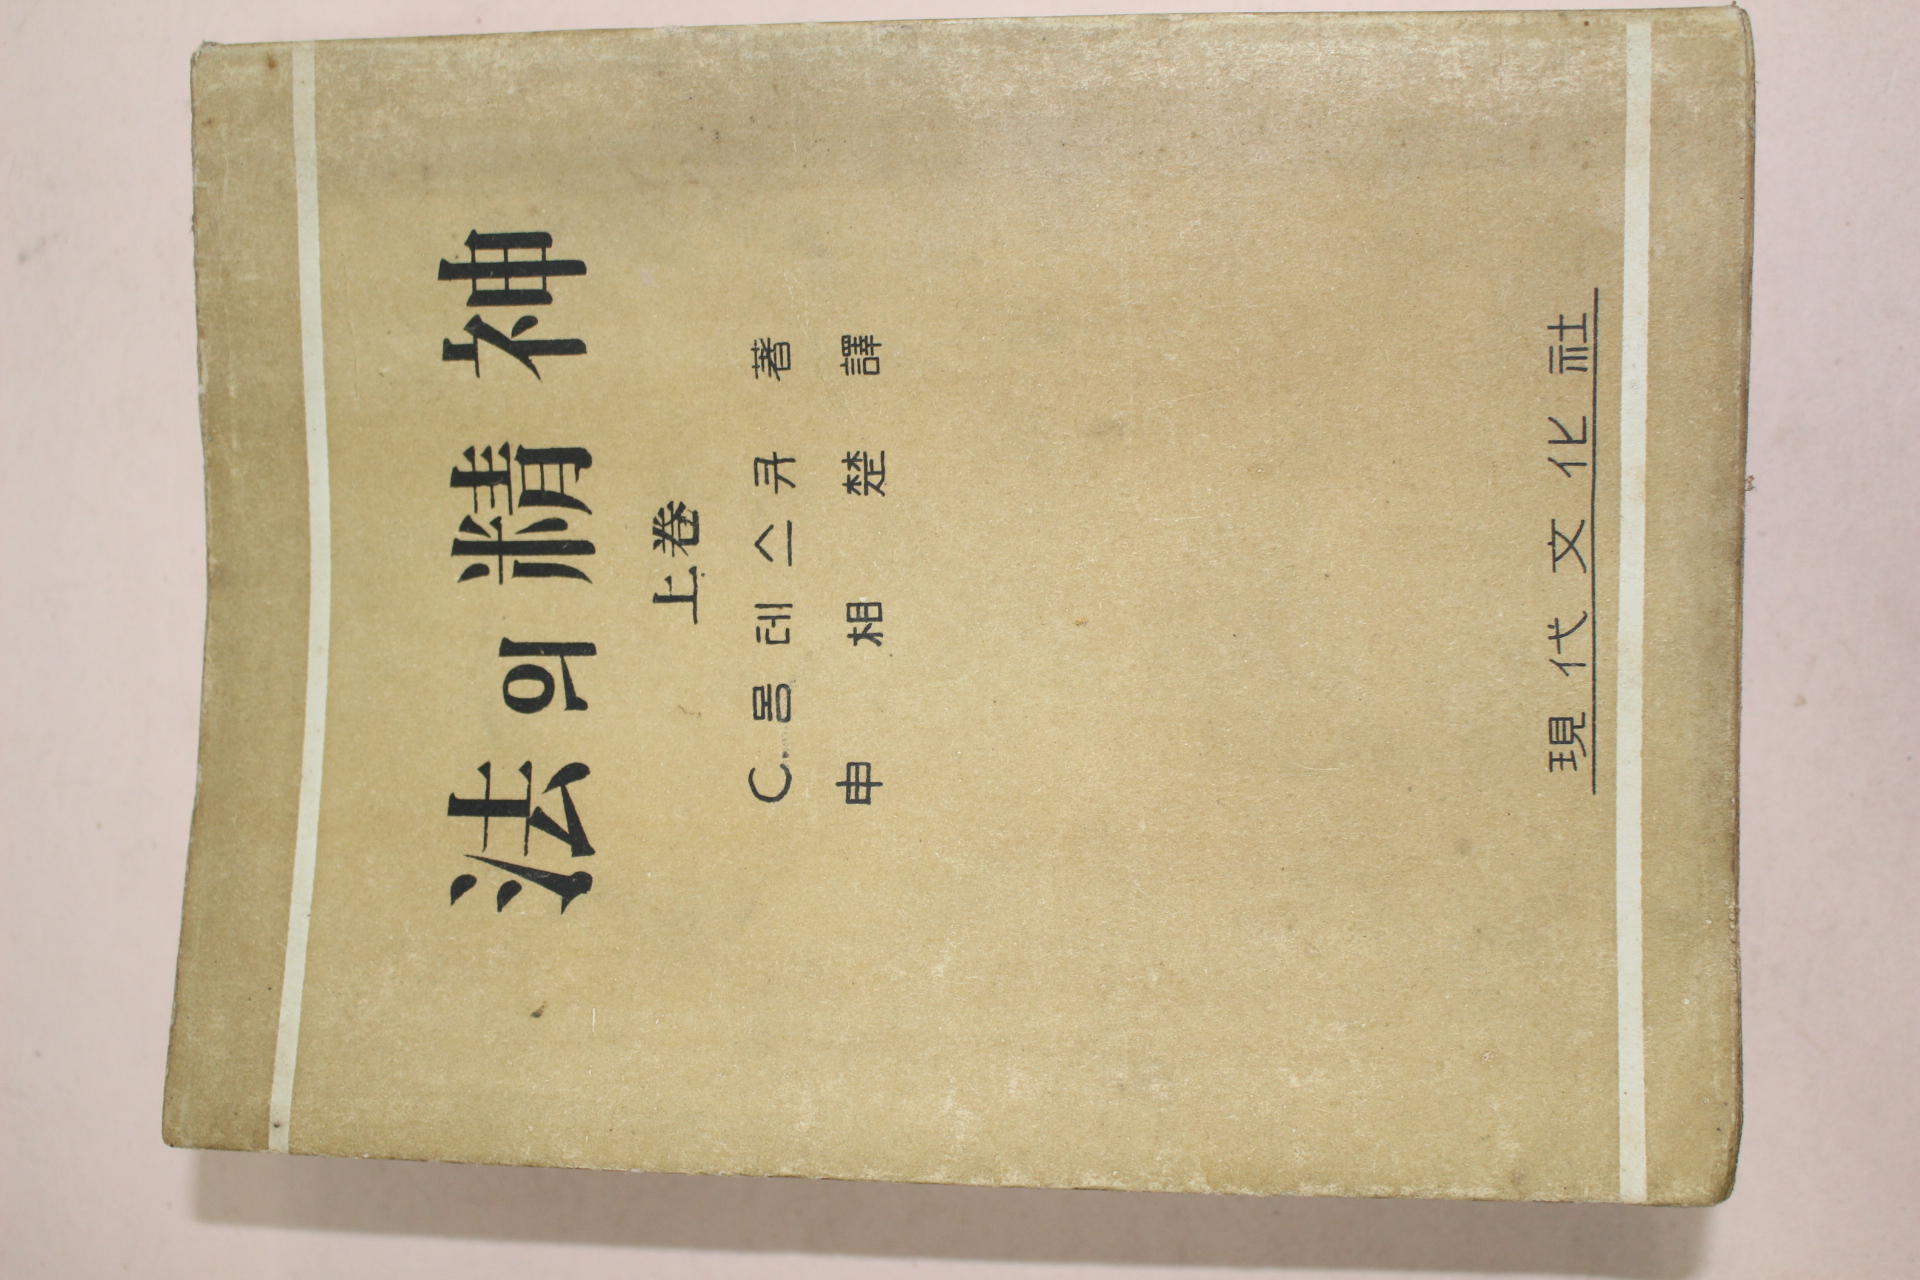 法의 精神
上卷
C. 몽테스큐 著
申相楚 譯
現代文化社